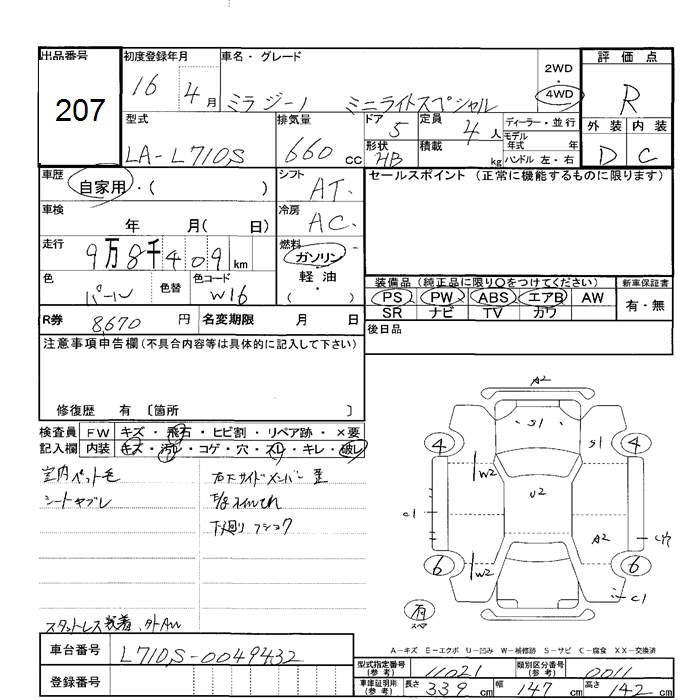 出品番号 初度登録年月 車名・グレード 2WD 評価点
207 16 4月 ミラ ジーノ ミニライトスペシャル ・ 4WD R
型式 排気量 ドア 5 定員 4人 ディーラー・並行 外装 内装
LA-L710S 660cc 形状 HB 積載 kg モデル年式 年 D C
ハンドル 左・右
車歴 自家用・( ) シフト AT. セールスポイント (正常に機能するものに限ります)
車検 年 月( 日) 冷房 AC
走行 9万8千409km 燃料 ガソリン・
軽・油
色 パール 色替 色コード W16 ( )
装備品 (純正品に限り〇をつけてください) 新車保証書
PS PW ABS エアB AW 有・無
SR ナビ TV カワ
R券 8670円 名変期限 月 日 後日品
注意事項申告欄 (不具合内容等は具体的に記入して下さい)
修復歴 有 〔箇所 〕
検査員 FW キズ・飛石・ヒビ割・リペア跡・×要
記入欄 内装 キズ・汚レ・コゲ・穴・スレ・キレ・破レ
室内ペット毛
シートヤブレ
下廻り
A2
S1
4 S1 4
W2 U2
C1 A2
6 W2 6
C1
有
スペア
A-キズ E-エクボ U-凹み W-補修跡 S-サビ C-腐食 XX-交換済
車台番号 L710S-0049432
型式指定番号 (参考) 11021 類別区分番号 (参考) 0011
登録番号
車庫証明用 (参考) 長さ 339cm 幅 147cm 高さ 142cm